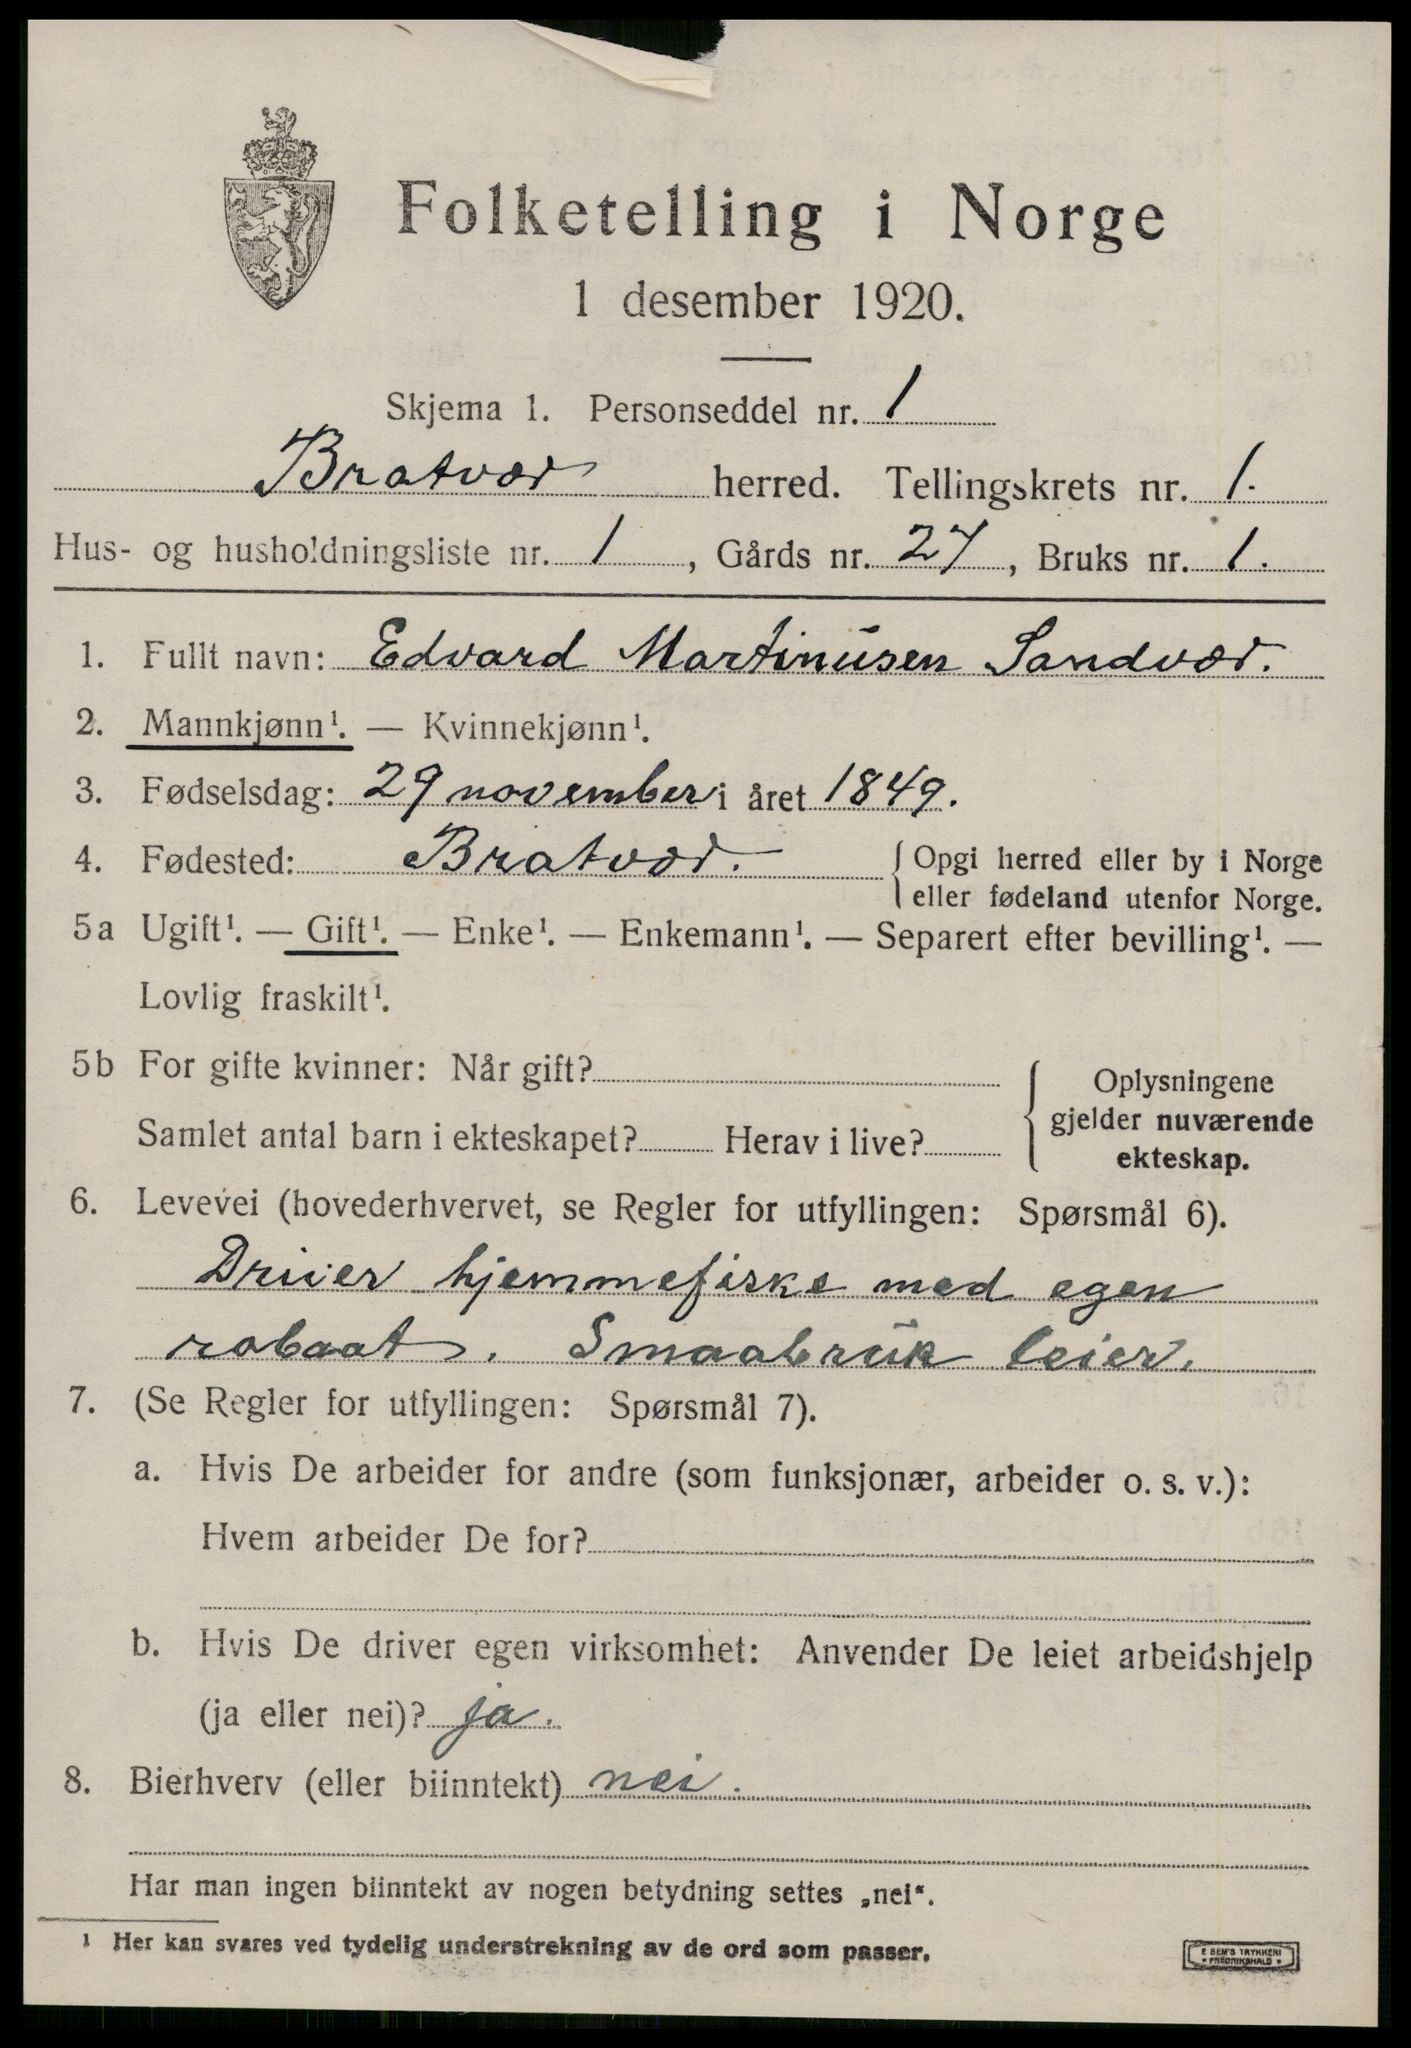 Folketelling i Norge
1 desember 1920.
Skjema 1. Personseddel nr. 1
Bratvær herred. Tellingskrets nr. 1.
Hus- og husholdningsliste nr. 1, Gårds nr. 27, Bruks nr. 1.
1. Fullt navn: Edvard Martinusen Sandvær.
2. Mannkjønn¹. — Kvinnekjønn¹.
3. Fødselsdag: 29 november i året 1849.
4. Fødested: Bratvær. Opgi herred eller by i Norge
eller fødeland utenfor Norge.
5a Ugift¹. — Gift¹. — Enke¹. — Enkemann¹. — Separert efter bevilling¹. —
Lovlig fraskilt¹.
5b For gifte kvinner: Når gift?
Samlet antal barn i ekteskapet? Herav i live?
Oplysningene
gjelder nuværende
ekteskap.
6. Levevei (hovederhvervet, se Regler for utfyllingen: Spørsmål 6).
Driver hjemmefiske med egen
robaat. Smaabruk leier.
7. (Se Regler for utfyllingen: Spørsmål 7).
a. Hvis De arbeider for andre (som funksjonær, arbeider o. s. v.):
Hvem arbeider De for?
b. Hvis De driver egen virksomhet: Anvender De leiet arbeidshjelp
(ja eller nei)? ja.
8. Bierhverv (eller biinntekt) nei.
Har man ingen biinntekt av nogen betydning settes „nei“.
¹ Her kan svares ved tydelig understrekning av de ord som passer.
E SEM'S TRYKKERI
* FREDRIKSHALD *